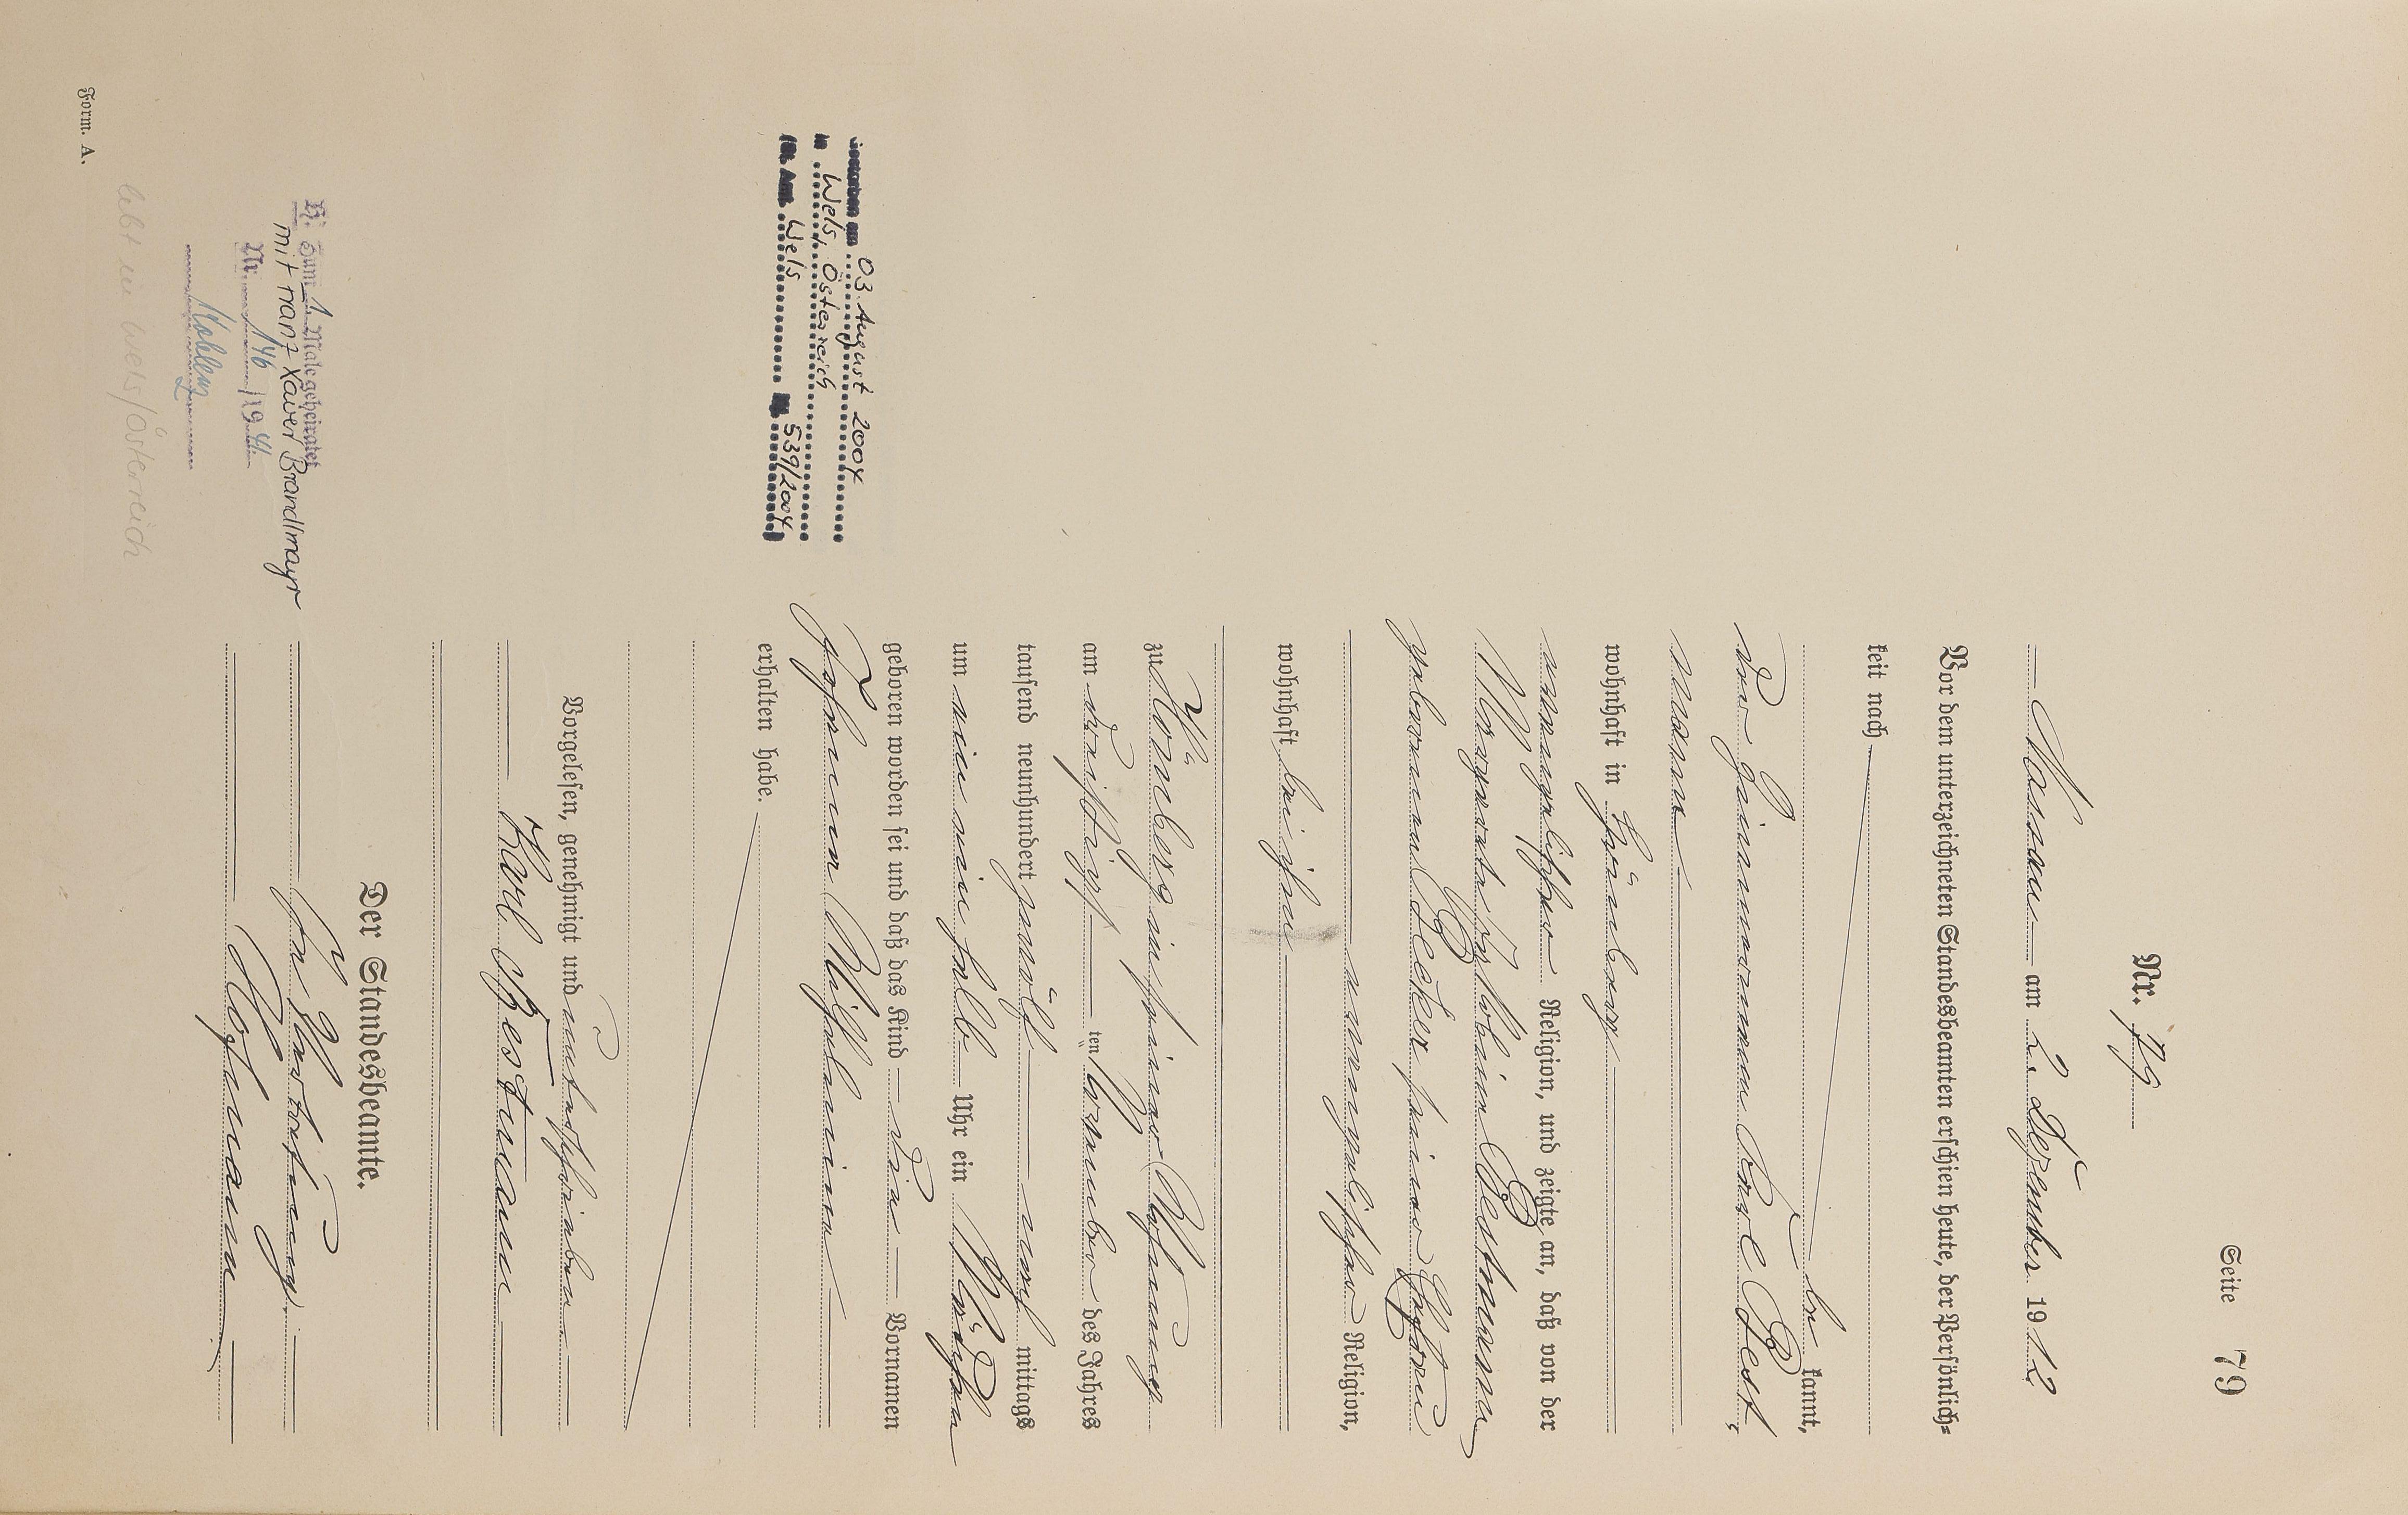 Seite 79
Nr. 79
Nassau am 2. Dezember 1912
Vor dem unterzeichneten Standesbeamten erschien heute, der Persönlich=
keit nach
be kannt,
der Zimmermann Karl Best,
mann
wohnhaft in Hömberg
evangelischer Religion, und zeigte an, daß von der
Bestmann
geborenen Becker, seiner Ehefrau
evangelischer Religion,
wohnhaft bei ihm
zu Hömberg in seiner Wohnung
am dreißigs ten November des Jahres
tausend neunhundert zwölf nach mittags
um ein ein halb Uhr ein Mädchen
geboren worden sei und daß das Kind die Vornamen
Wilhelmine
erhalten habe.
Vorgelesen, genehmigt und unterschrieben
Karl Bestmann
Der Standesbeamte.
In Vertretung.
Hofmann
Gestorben am 03. August 2004
in Wels, Österreich
(St. Amt Wels Nr. 539/2004)
zum 1. Male geheiratet
mit Franz Xaver Brandlmayr
Nr. 146/1941
Koblenz
lebt in Wels/Österreich
Form. A.